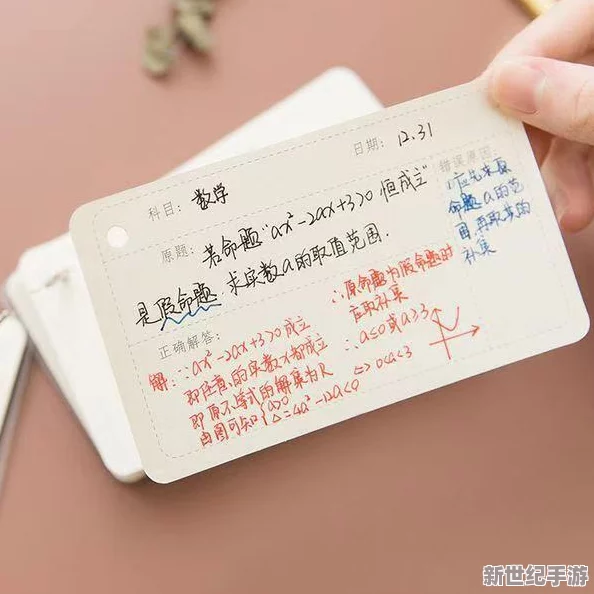 日期：12.31
科目：数学
错误原因：
原题：若命题"ax²-2ax+3>0 恒成立"
是假命题，求实数a的取值范围.
应先求原
命题a的范
围，再取其的
补集
正确解答：
解：∵ax²-2ax+3>0成立
即任意的实数x都成立
即原不等式的解集为R
由图可知{a>0
Δ=4a²-12a<0
⇔0<a<3
∴原命题为假命题时
应取补集
∴a≤0或a≥3
新世纪手游